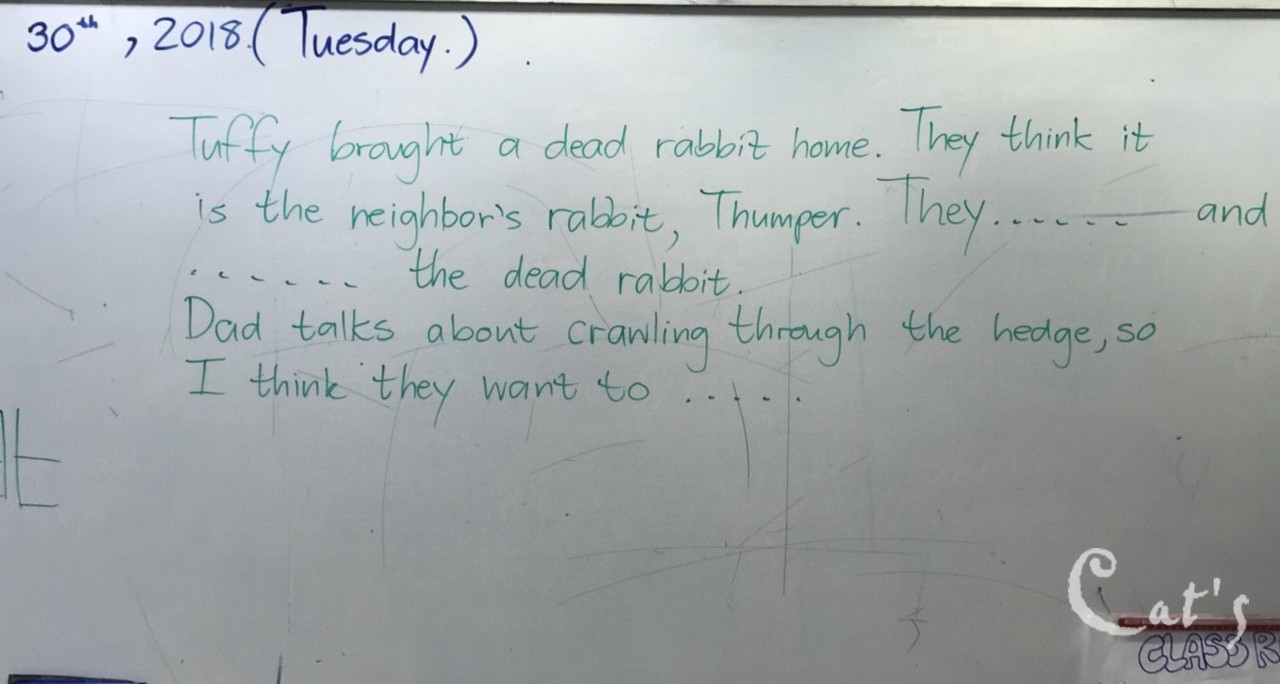 30th, 2018. (Tuesday.)
Tuffy brought a dead rabbit home. They think it
is the neighbor's rabbit, Thumper. They...... and
...... the dead rabbit.
Dad talks about crawling through the hedge, so
I think they want to .....
Cat's
CLASSR